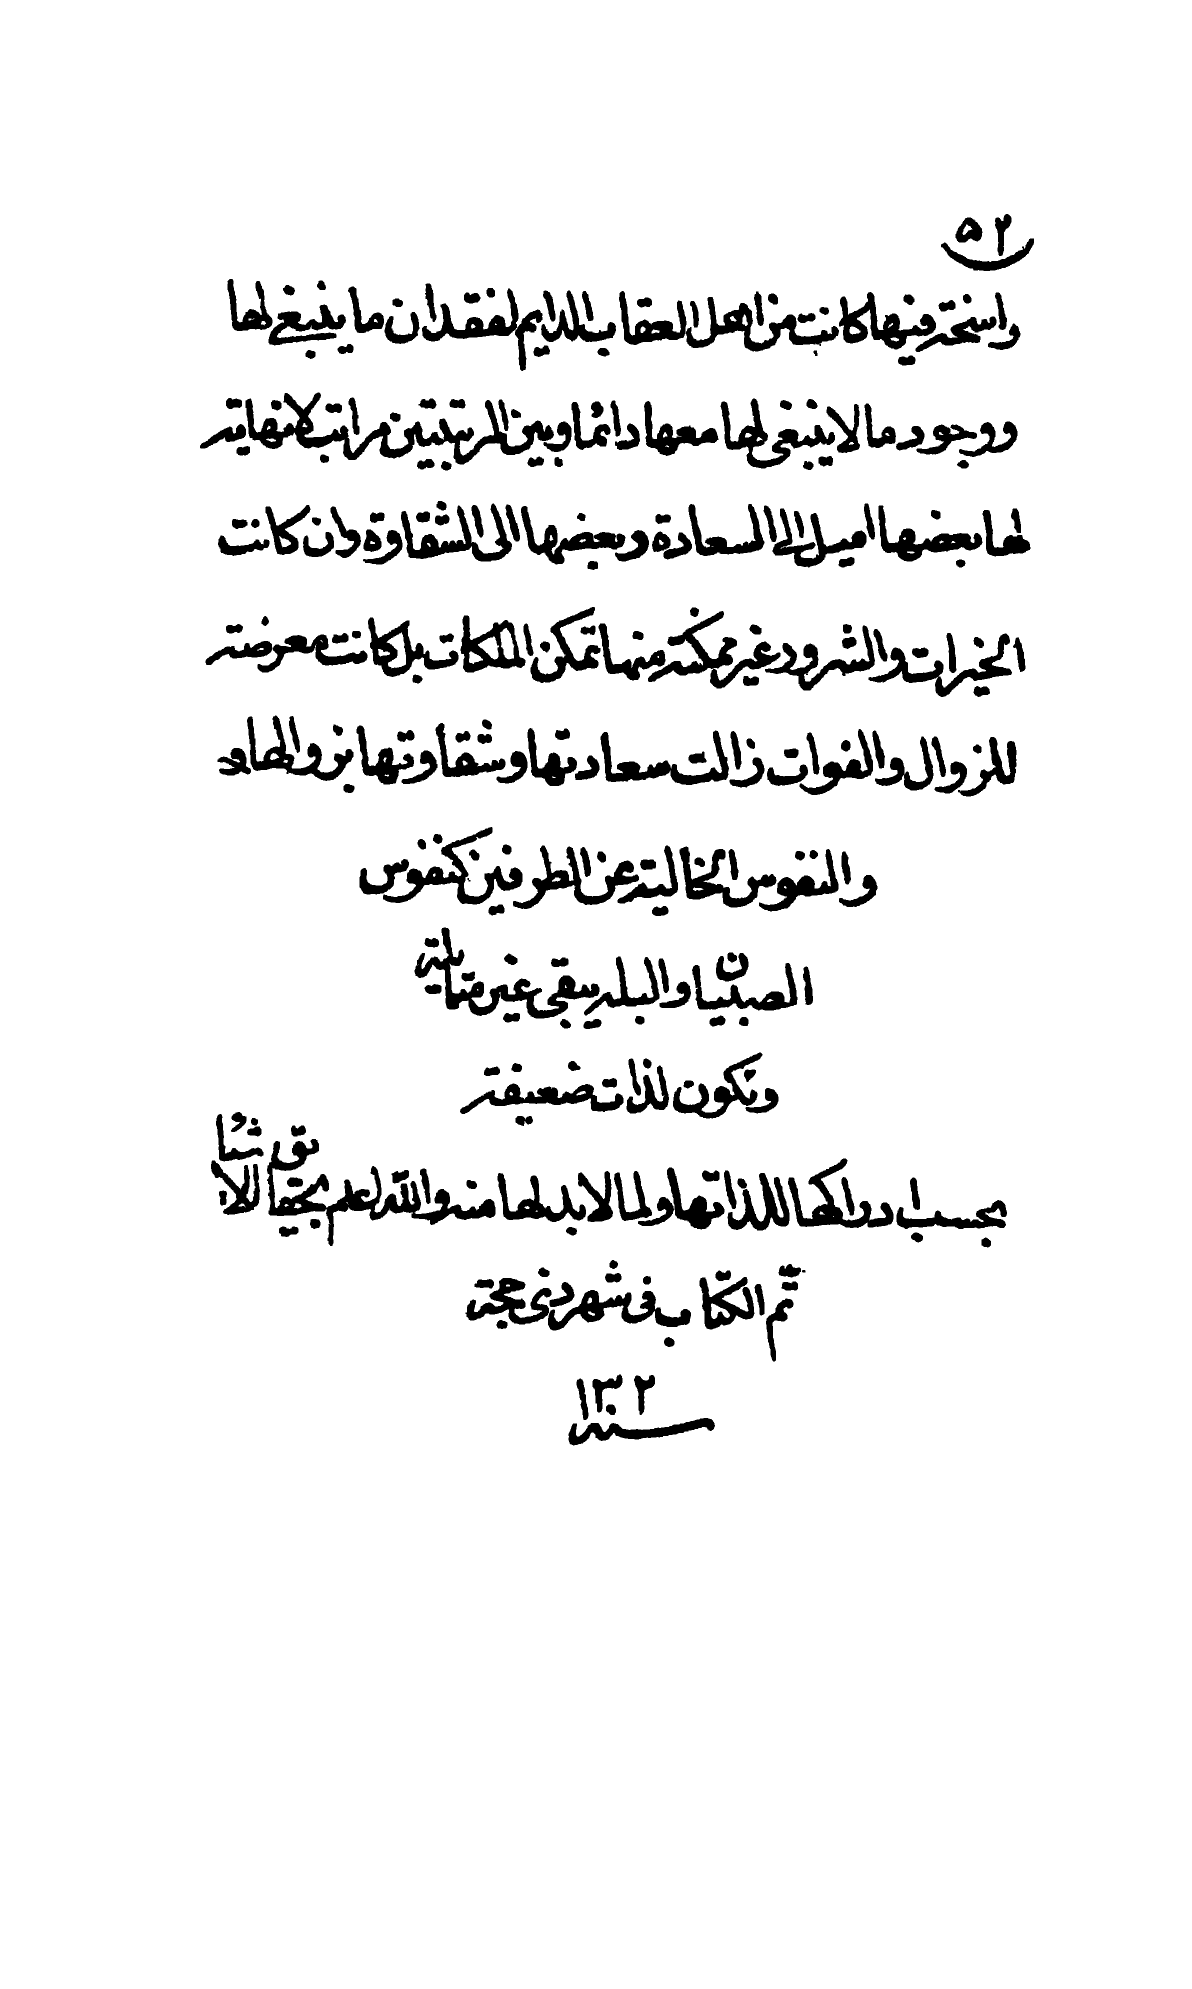 ٥٢
واسخة فيها كانت من اهل العقاب الدايم لفقدان ما ينبغي لها
ووجود ما لا ينبغى لها معها دائما وبين المرتبتين مراتب لا نهاية
لها بعضها اميل الى السعادة وبعضها الى الشقاوة وان كانت
الخيرات والشرور غير ممكنة منها تمكن الملكات بل كانت معرضة
للزوال والفوات زالت سعادتها وشقاوتها بزوالها و
والنفوس الخالية عن الطرفين كنفوس
الصبيان والبله يبقى غير متالية
وتكون لذات ضعيفة
بحسب ادراكها للذاتها ولما لا بد لها منه والله اعلم بحقايق الاشيا
تم الكتاب فى شهر ذى حجة
سنة ١٣٠٢